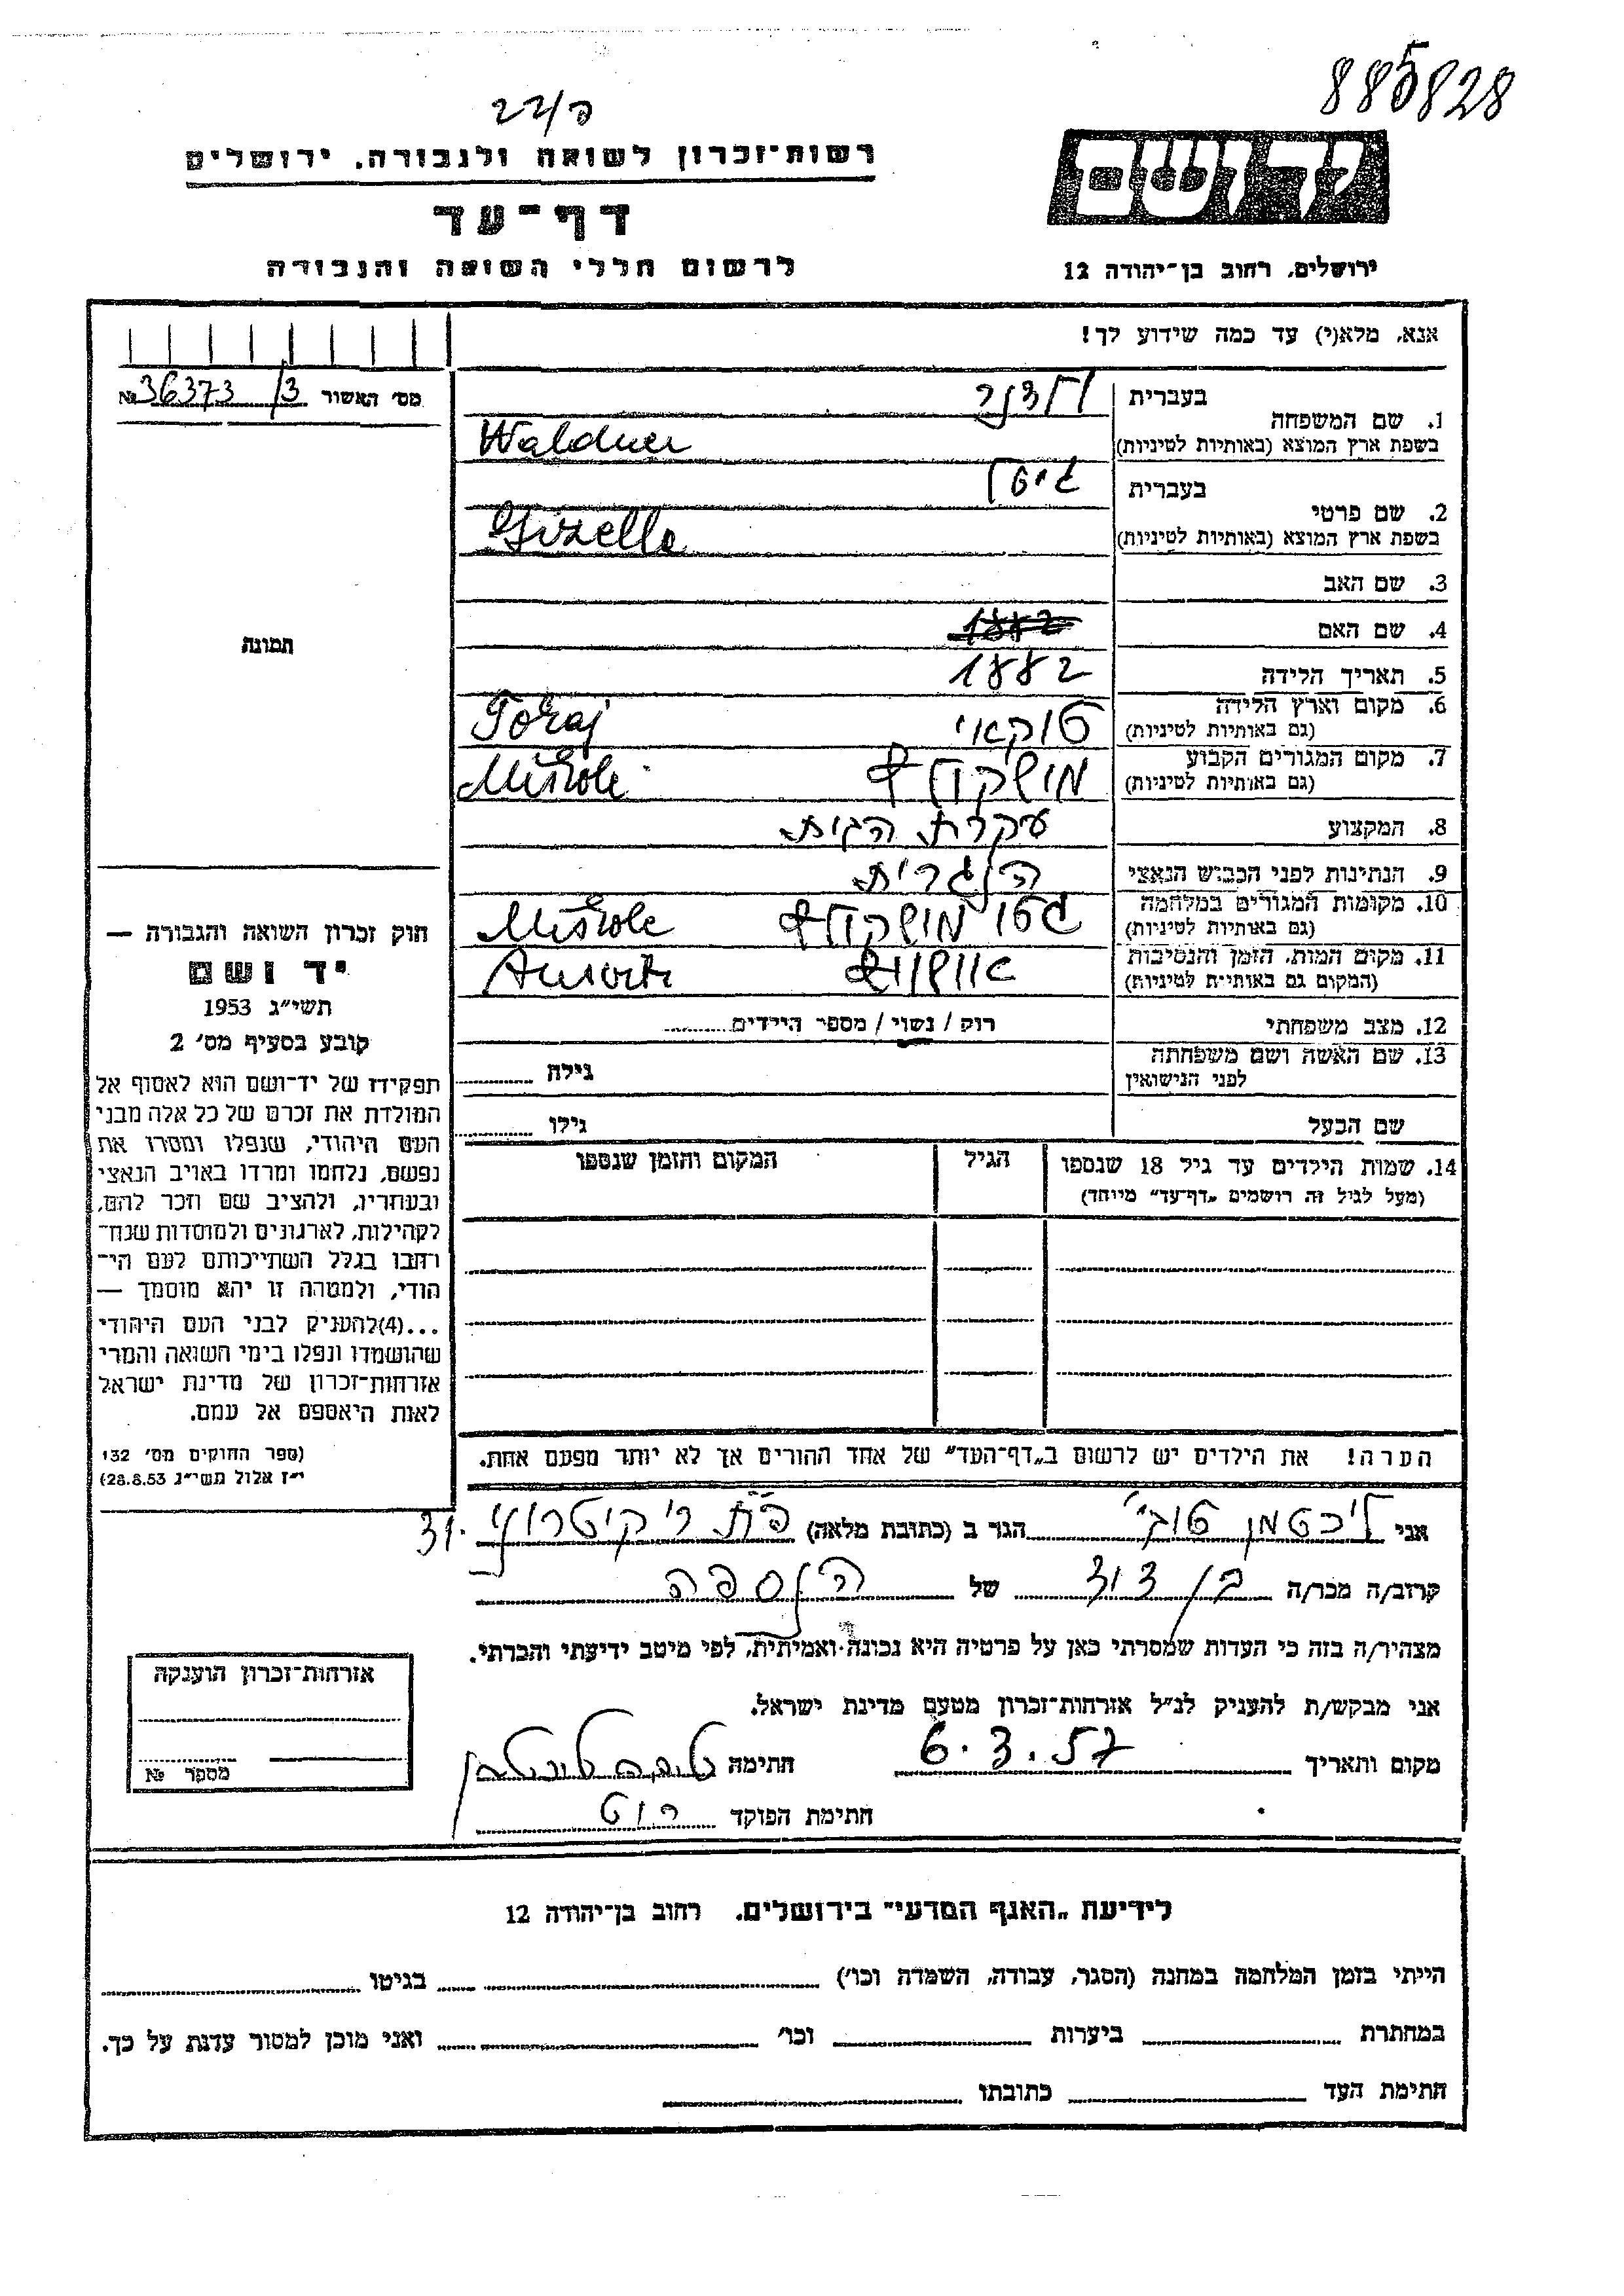 885828
ד/22
רשות־זכרון לשואה ולגבורה, ירושלים
דף־עד
לרשום חללי השואה והגבורה
יד ושם
ירושלים, רחוב בן־יהודה 12
אנא, מלא(י) עד כמה שידוע לך!
מס׳ האשור № 36373/3
תמונה
1. שם המשפחה בעברית ולדנר
בשפת ארץ המוצא (באותיות לטיניות) Waldner
2. שם פרטי בעברית גיזל
בשפת ארץ המוצא (באותיות לטיניות) Gizelle
3. שם האב
4. שם האם 1882
5. תאריך הלידה 1882
6. מקום וארץ הלידה (גם באותיות לטיניות) טוקאי Tokaj
7. מקום המגורים הקבוע (גם באותיות לטיניות) מישקולץ Miskole
8. המקצוע עקרת הבית
9. הנתינות לפני הכבוש הנאצי הונגרית
10. מקומות המגורים במלחמה (גם באותיות לטיניות) גטו מישקולץ Miskole
11. מקום המות, הזמן והנסיבות (המקום גם באותיות לטיניות) אושויץ
12. מצב משפחתי רוק / נשוי / מספר הילדים
13. שם האשה ושם משפחתה לפני הנישואין גילה
שם הבעל גילו
14. שמות הילדים עד גיל 18 שנספו הגיל המקום והזמן שנספו
(מעל לגיל זה רושמים „דף־עד״ מיוחד)
הערה! את הילדים יש לרשום ב„דף־העד״ של אחד ההורים אך לא יותר מפעם אחת.
חוק זכרון השואה והגבורה —
יד ושם
תשי״ג 1953
קובע בסעיף מס׳ 2
תפקידו של יד־ושם הוא לאסוף אל
המולדת את זכרם של כל אלה מבני
העם היהודי, שנפלו ומסרו את
נפשם, נלחמו ומרדו באויב הנאצי
ובעוזריו, ולהציב שם וזכר להם,
לקהילות, לארגונים ולמוסדות שנח־
רבו בגלל השתייכותם לעם הי־
הודי, ולמטרה זו יהא מוסמך —
...(4)להעניק לבני העם היהודי
שהושמדו ונפלו בימי השואה והמרי
אזרחות־זכרון של מדינת ישראל
לאות היאספם אל עמם.
(ספר החוקים מס׳ 132
י״ז אלול תשי״ג 28.8.53)
אני ליכטמן הגר ב (כתובת מלאה)
קרוב/ה מכר/ה בן דוד של הנספה
מצהיר/ה בזה כי העדות שמסרתי כאן על פרטיה היא נכונה ואמיתית, לפי מיטב ידיעתי והכרתי.
אני מבקש/ת להעניק לנ״ל אזרחות־זכרון מטעם מדינת ישראל.
מקום ותאריך 6.3.57 חתימה
חתימת הפוקד
אזרחות־זכרון הוענקה
מספר №
לידיעת „האגף המדעי״ בירושלים, רחוב בן־יהודה 12
הייתי בזמן המלחמה במחנה (הסגר, עבודה, השמדה וכו׳) בגיטו
במחתרת ביערות וכו׳ ואני מוכן למסור עדות על כך.
חתימת העד כתובתו